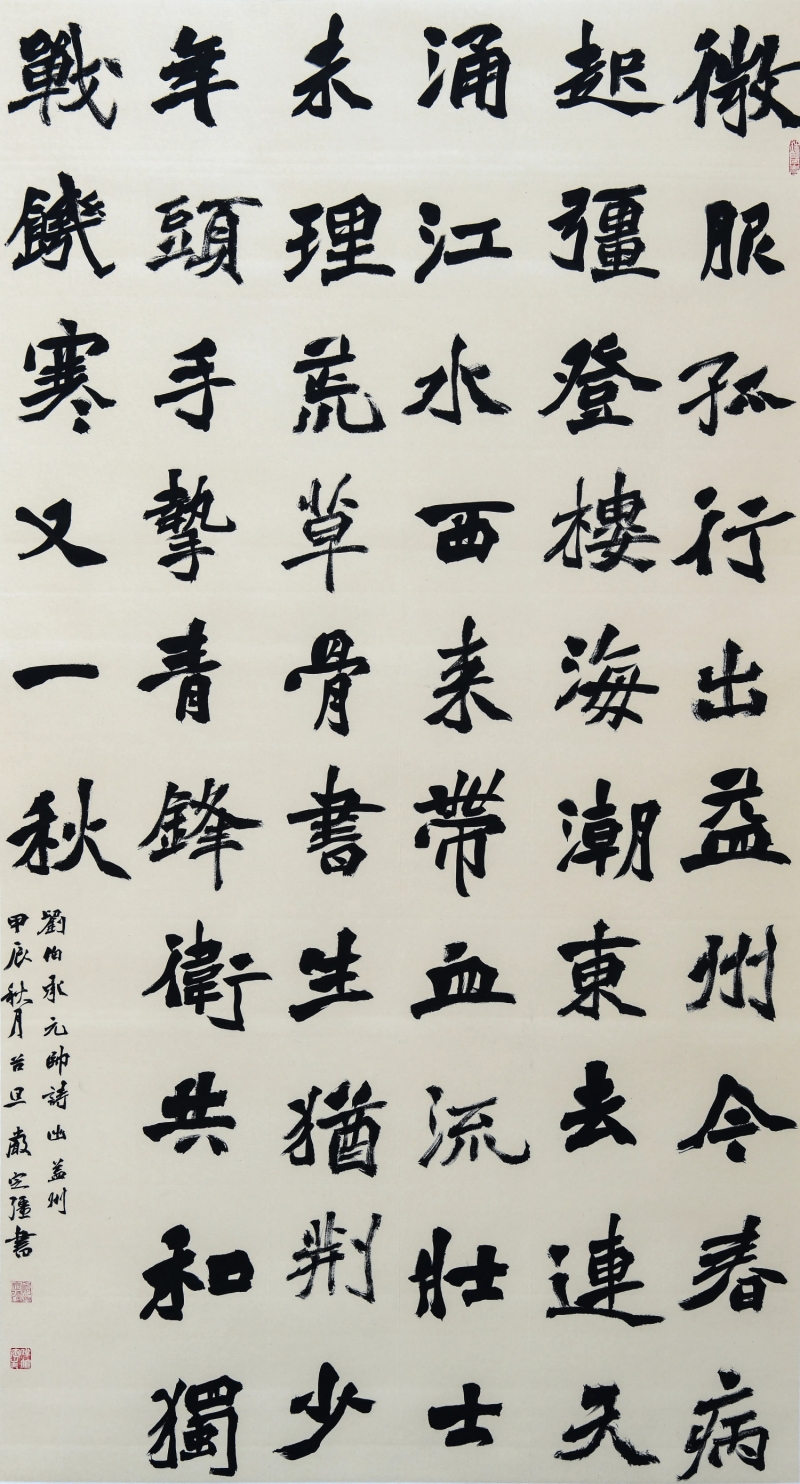 微服孤行出益州今春病
起彊登樓海潮東去連天
涌江水西来帶血流壮士
未理荒草骨書生猶荆少
年頭手摯青鋒衛共和獨
戰饑寒又一秋
劉伯承元帥詩出益州
甲辰秋月吉旦嚴定彊書